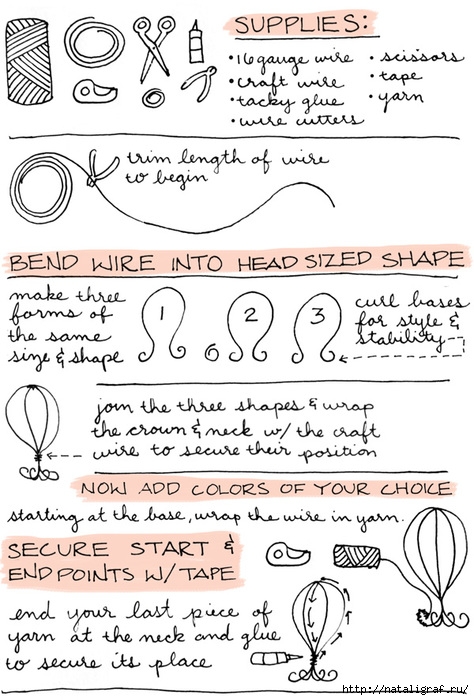 SUPPLIES:
• 16 gauge wire
• craft wire
• tacky glue
• wire cutters
• scissors
• tape
• yarn
trim length of wire
to begin
BEND WIRE INTO HEAD SIZED SHAPE
make three
forms of
the same
size & shape
1 2 3
curl bases
for style &
stability
join the three shapes & wrap
the crown & neck w/ the craft
wire to secure their position
NOW ADD COLORS OF YOUR CHOICE
starting at the base, wrap the wire in yarn.
SECURE START &
END POINTS W/ TAPE
end your last piece of
yarn at the neck and glue
to secure its place
http://nataligraf.ru/